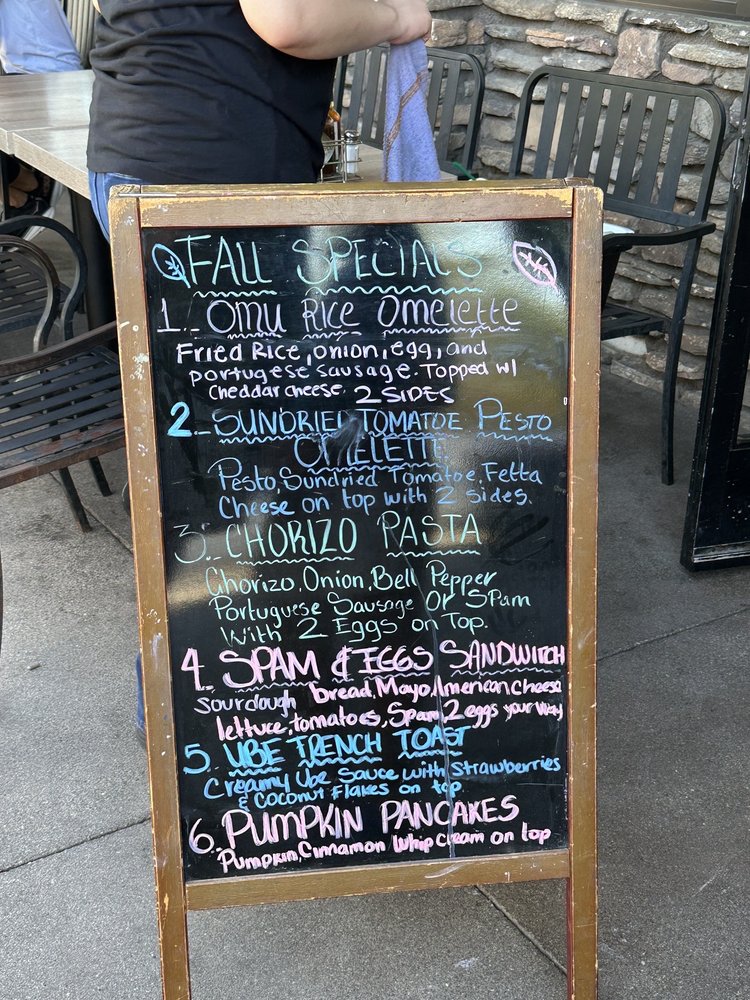 FALL SPECIALS
1.. Omu Rice Omelette
Fried Rice, onion, egg, and
portugese sausage. Topped w/
Cheddar cheese 2 SIDES
2.. SUNDRIED TOMATOE PESTO
OMELETTE
Pesto, Sundried Tomatoe, Fetta
Cheese on top with 2 sides.
3.. CHORIZO PASTA
Chorizo, Onion, Bell Pepper
Portuguese Sausage Or Spam
With 2 Eggs on Top.
4.. SPAM & EGGS SANDWITCH
sourdough bread, Mayo, American cheese
lettuce, tomatoes, Spam, 2 eggs your way
5. UBE FRENCH TOAST
Creamy Ube Sauce with Strawberries
& Coconut Flakes on top.
6. PUMPKIN PANCAKES
Pumpkin, Cinnamon Whip cream on top